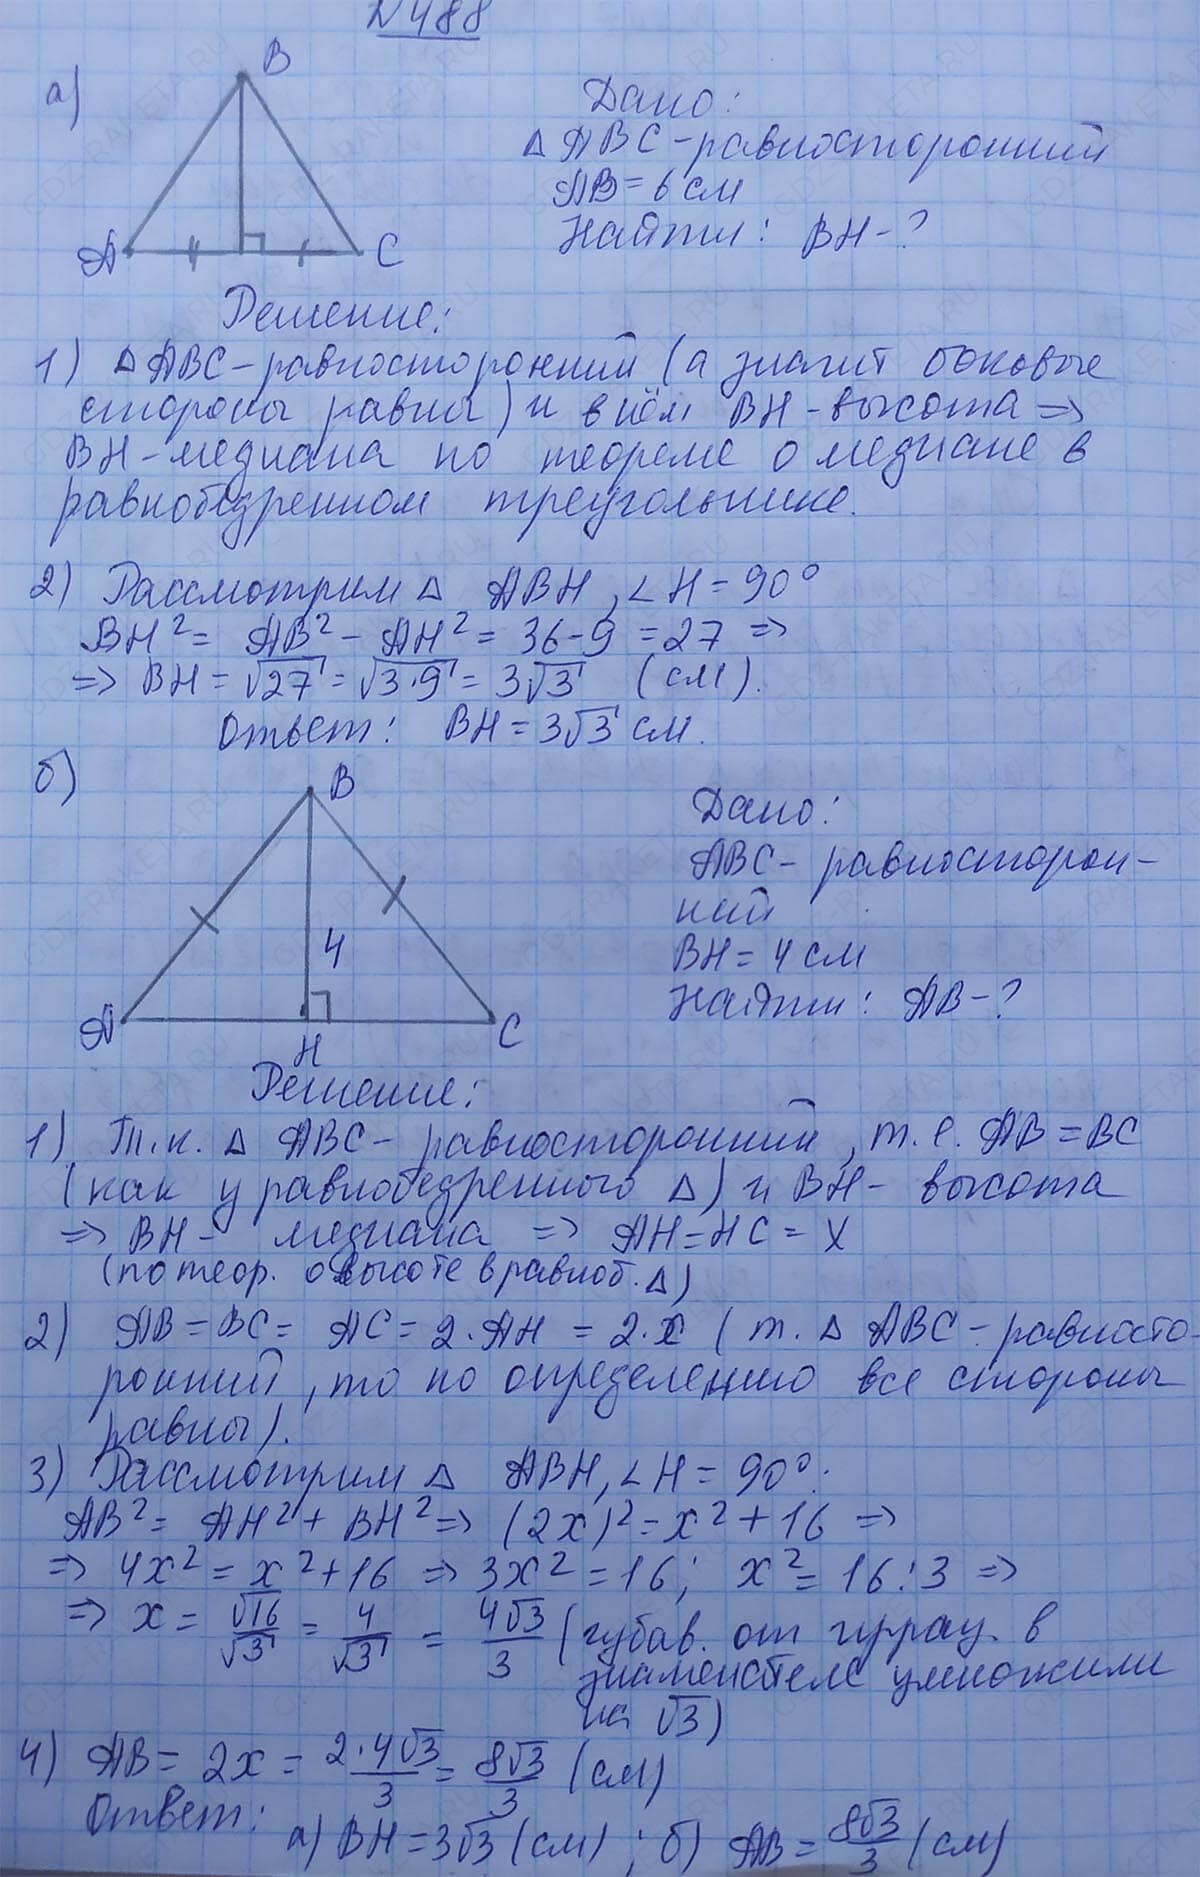 №488
а)
B
A
C
Дано:
△ ABC-равносторонний
AB = 6 см
Найти: BH-?
Решение:
1) △ ABC-равносторонний (а значит боковые
стороны равны) и в нём BH-высота ⇒
BH-медиана по теореме о медиане в
равнобедренном треугольнике.
2) Рассмотрим △ ABH, ∠H = 90°
BH² = AB² - AH² = 36-9 = 27 ⇒
⇒ BH = √27 = √3·9 = 3√3 (см).
Ответ: BH = 3√3 см.
б)
B
4
A
H
C
Дано:
ABC- равносторон-
ний
BH = 4 см
Найти: AB-?
Решение:
1) Т.к. △ ABC- равносторонний, т.е. AB = BC
(как у равнобедренного △) и BH- высота
⇒ BH- медиана ⇒ AH = HC = x
(по теор. о высоте в равноб. △)
2) AB = BC = AC = 2·AH = 2·x (т. △ ABC-равносто-
ронний, то по определению все стороны
равны).
3) Рассмотрим △ ABH, ∠H = 90°:
AB² = AH² + BH² ⇒ (2x)² = x² + 16 ⇒
⇒ 4x² = x² + 16 ⇒ 3x² = 16; x² = 16:3 ⇒
⇒ x = √16/√3 = 4/√3 = 4√3/3 (избав. от иррац. в
знаменателе умножили
на √3)
4) AB = 2x = 2·4√3/3 = 8√3/3 (см)
Ответ: а) BH = 3√3 (см); б) AB = 8√3/3 (см)